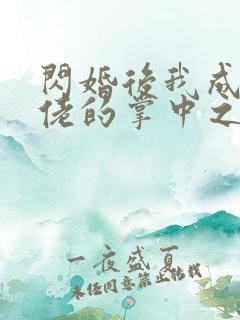 閃婚後我成
佬的掌中之
一夜盛夏
未经同意禁止转载